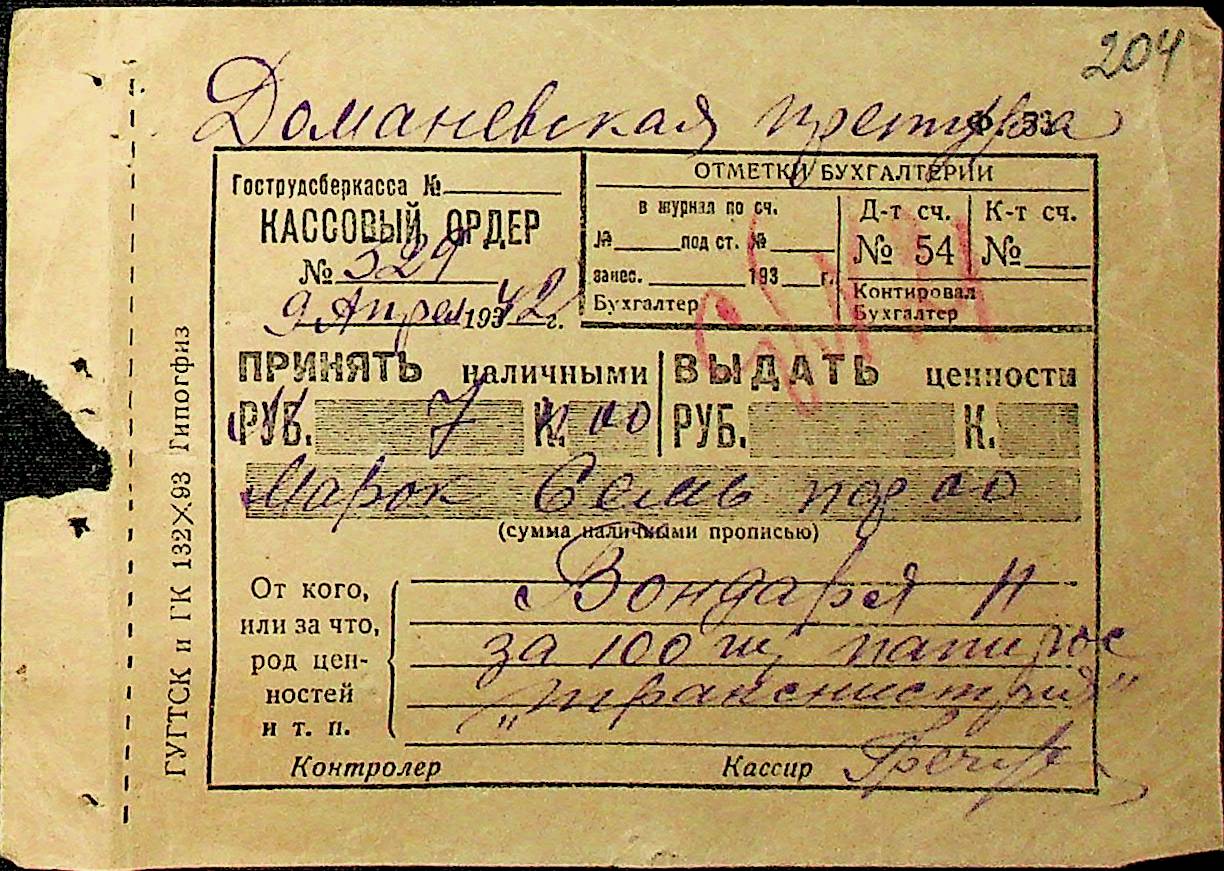 204
Доманевская претура
Ф. 53
Гострудсберкасса №
КАССОВЫЙ ОРДЕР
№ 329
9 Апреля 1942 г.
ОТМЕТКИ БУХГАЛТЕРИИ
в журнал по сч.
№ под ст. №
занес. 193 г.
Бухгалтер
Д-т сч.
№ 54
Контировал
Бухгалтер
К-т сч.
№
ПРИНЯТЬ наличными
РУБ. 7 К. 00
ВЫДАТЬ ценности
РУБ. К.
Марок Семь 00
(сумма наличными прописью)
От кого,
или за что,
род цен-
ностей
и т. п.
Бондаря Н
за 100 шт папирос
„Транснистрия"
Контролер
Кассир
ГУГТСК и ГК 132X93 Гипогфиз